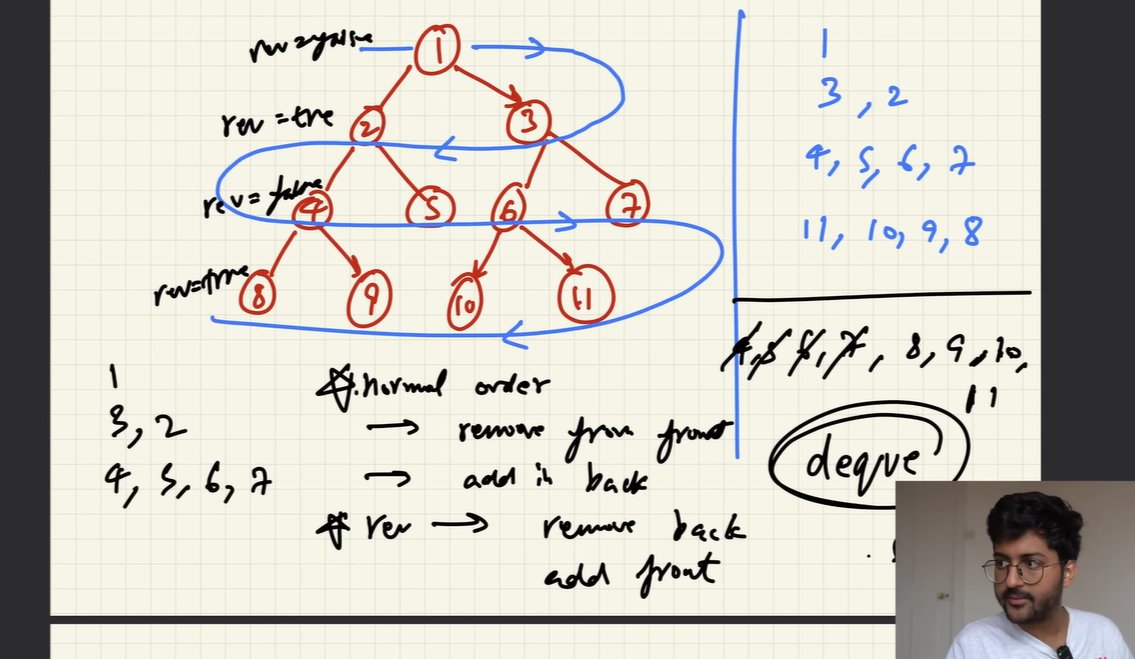 rev = false
1
rev = true
2
3
rev = false
4
5
6
7
rev = true
8
9
10
11
1
3, 2
4, 5, 6, 7
11, 10, 9, 8
4, 5, 6, 7, 8, 9, 10,
11
deque
1
3, 2
4, 5, 6, 7
☆. normal order
→ remove from front
→ add in back
☆ rev → remove back
add front